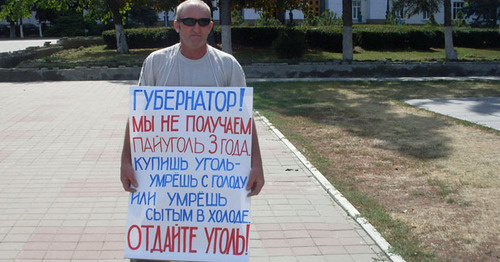 ГУБЕРНАТОР!
МЫ НЕ ПОЛУЧАЕМ
ПАЙУГОЛЬ 3 ГОДА.
КУПИШЬ УГОЛЬ-
УМРЁШЬ С ГОЛОДУ
ИЛИ УМРЁШЬ
СЫТЫМ В ХОЛОДЕ
ОТДАЙТЕ УГОЛЬ!